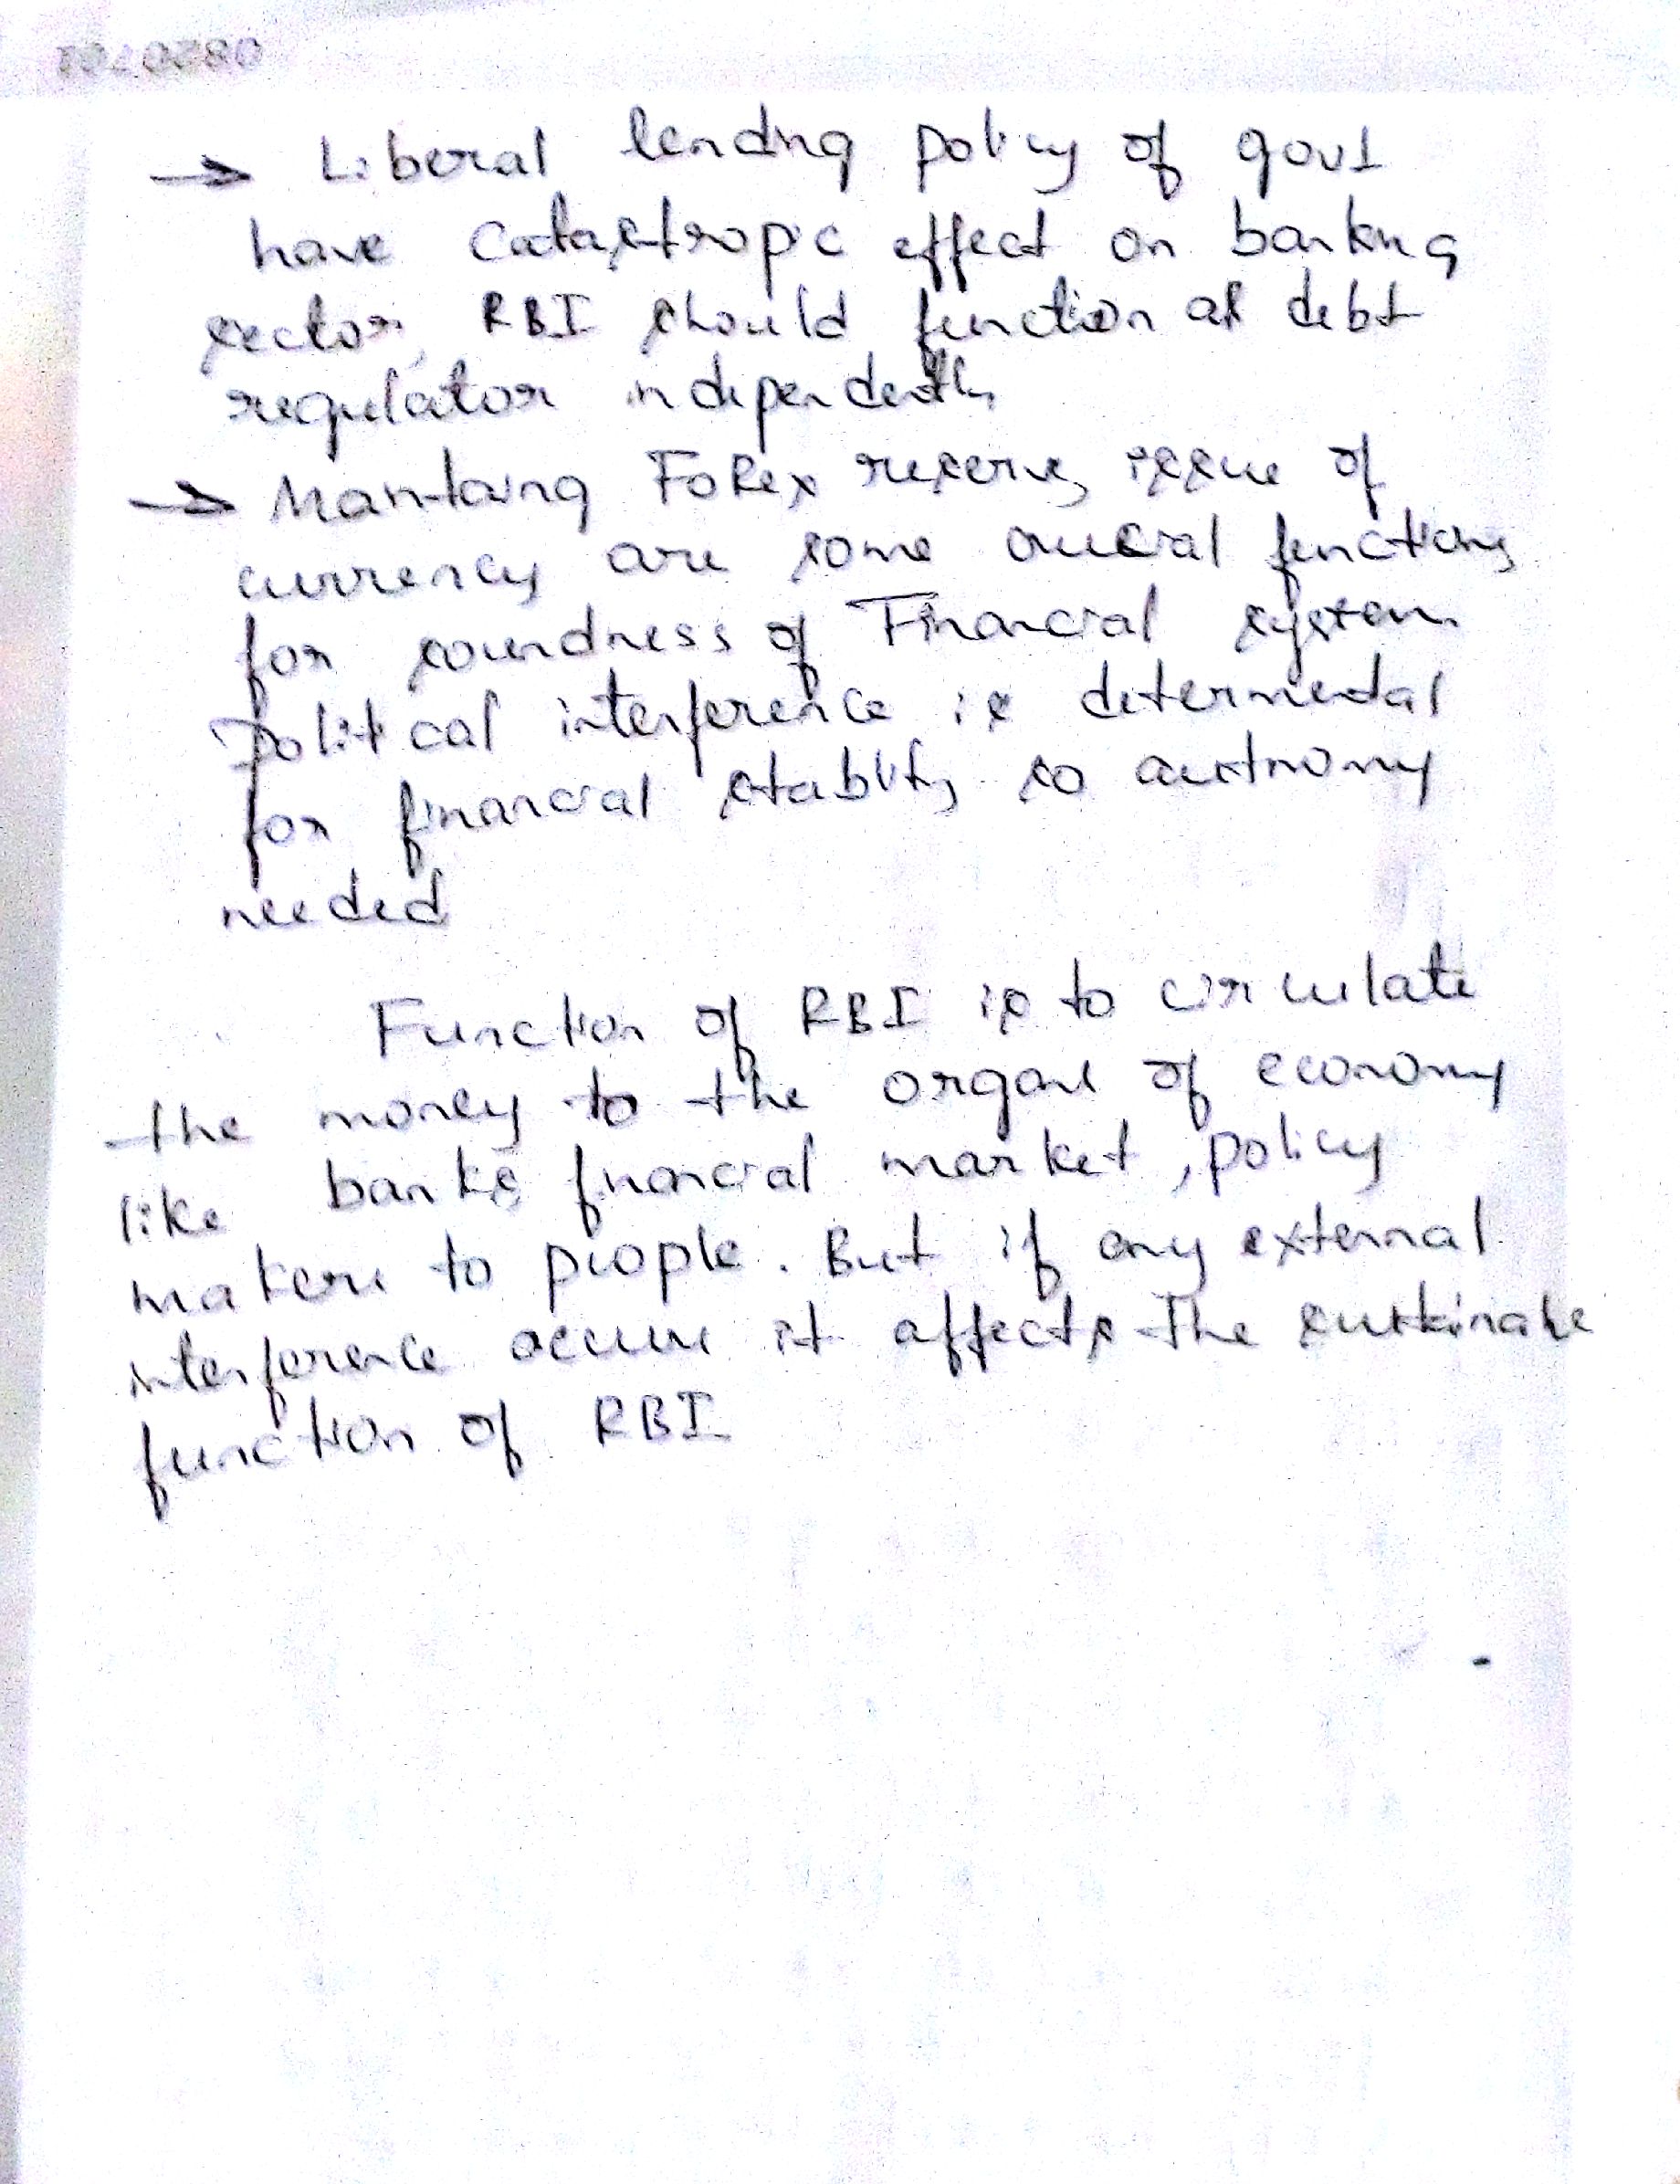 → Liberal lending policy of govt
have catastropic effect on banking
sector, RBI should function as debt
regulator independently
→ Mantaing Forex reserve, issue of
currency are some crucial functions
for soundness of Financial system
political interference is determental
for financial stablity so autnomy
needed
Function of RBI is to circulate
the money to the organs of economy
like banks financial market, policy
makers to people. But if any external
interference occurs it affects the
function of RBI